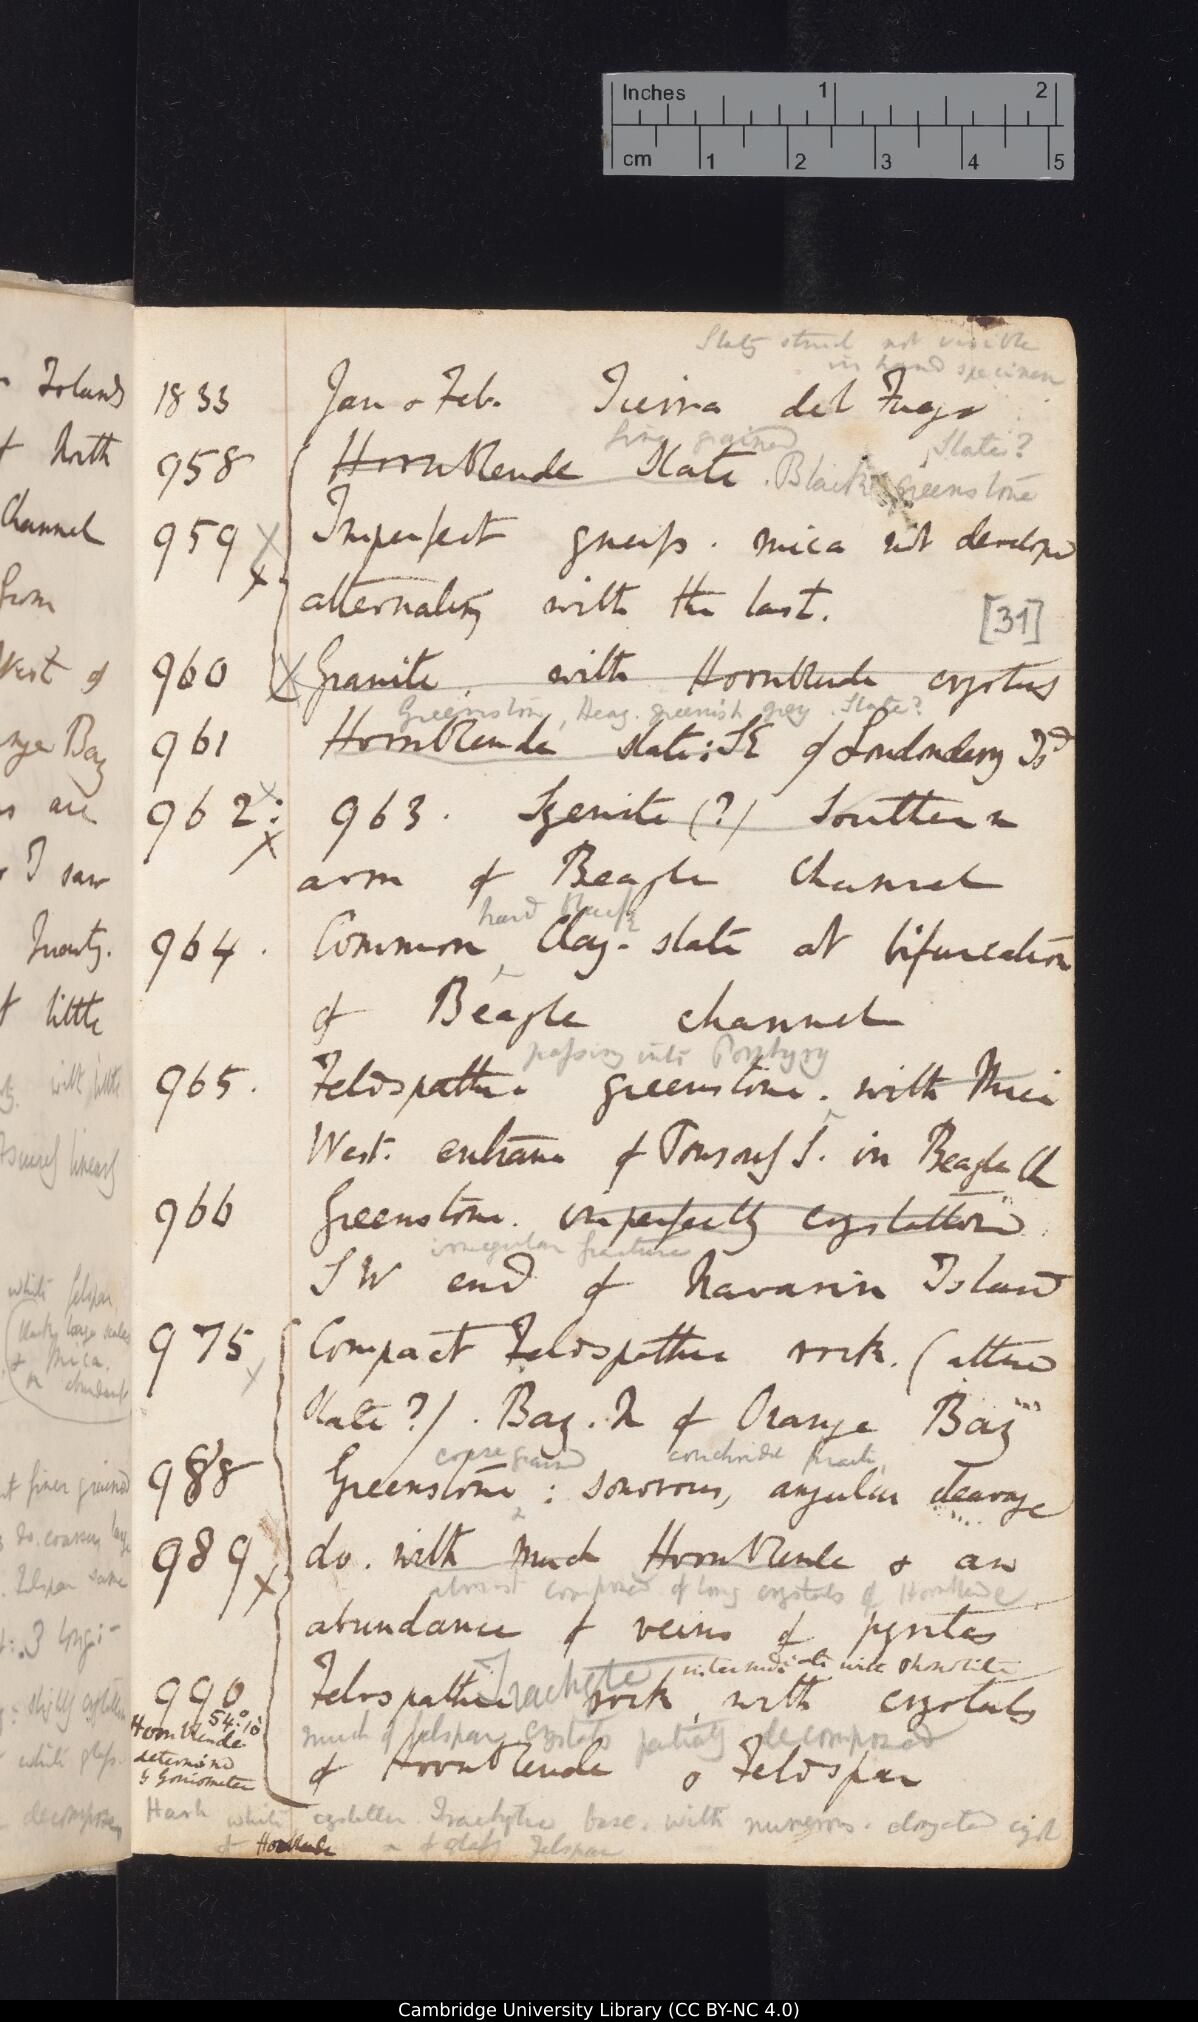 Inches 1 2
cm 1 2 3 4 5
Slaty struct not visible
in hand specimen
1833 Jan & Feb. Tierra del Fuego
fine grained Slate?
958 Hornblende Slate. Black Greenstone
959 X Imperfect gneiss. mica not develope
alternating with the last.
[31]
960 X Granite. with Hornblende crystals
Greenstone, Heavy greenish grey. Slate?
961 Hornblende slate: SE of Londonderry Isd
962: 963. Syenite (?) Southern
arm of Beagle Channel
hard black
964. Common Clay-slate at bifurcation
of Beagle channel
passing into Porphyry
965. Feldspathic greenstone. with Mica
West. entrance of Ponsonby S. in Beagle Ch
966 Greenstone. imperfectly crystalline
irregular fracture
SW end of Navarin Island
975 Compact Feldspathic rock. (altered
slate?). Bay. N of Orange Bay
coarse grained conchoidal fract.
988 Greenstone: sonorous, angular cleavage
989 do. with much Hornblende & an
almost composed of long crystals of Hornblende
abundance of veins of pyrites
Trachyte intermediate with Phonolite
990 Feldspathic rock, with crystals
54°:10'
Hornblende
determined
by Goniometer
much of felspar crystals partially decomposed
of Hornblende & Feldspar
Harsh white crystalline Trachytic base. with numerous. elongated cryst
of Hornblende & of glassy Felspar
Islands
of North
Channel
from
West of
Orange Bay
are
I saw
Quartz.
of little
with little
white felspar
Mica.
abundant
finer grained
do. coarser
Felspar same
decomposed
Cambridge University Library (CC BY-NC 4.0)